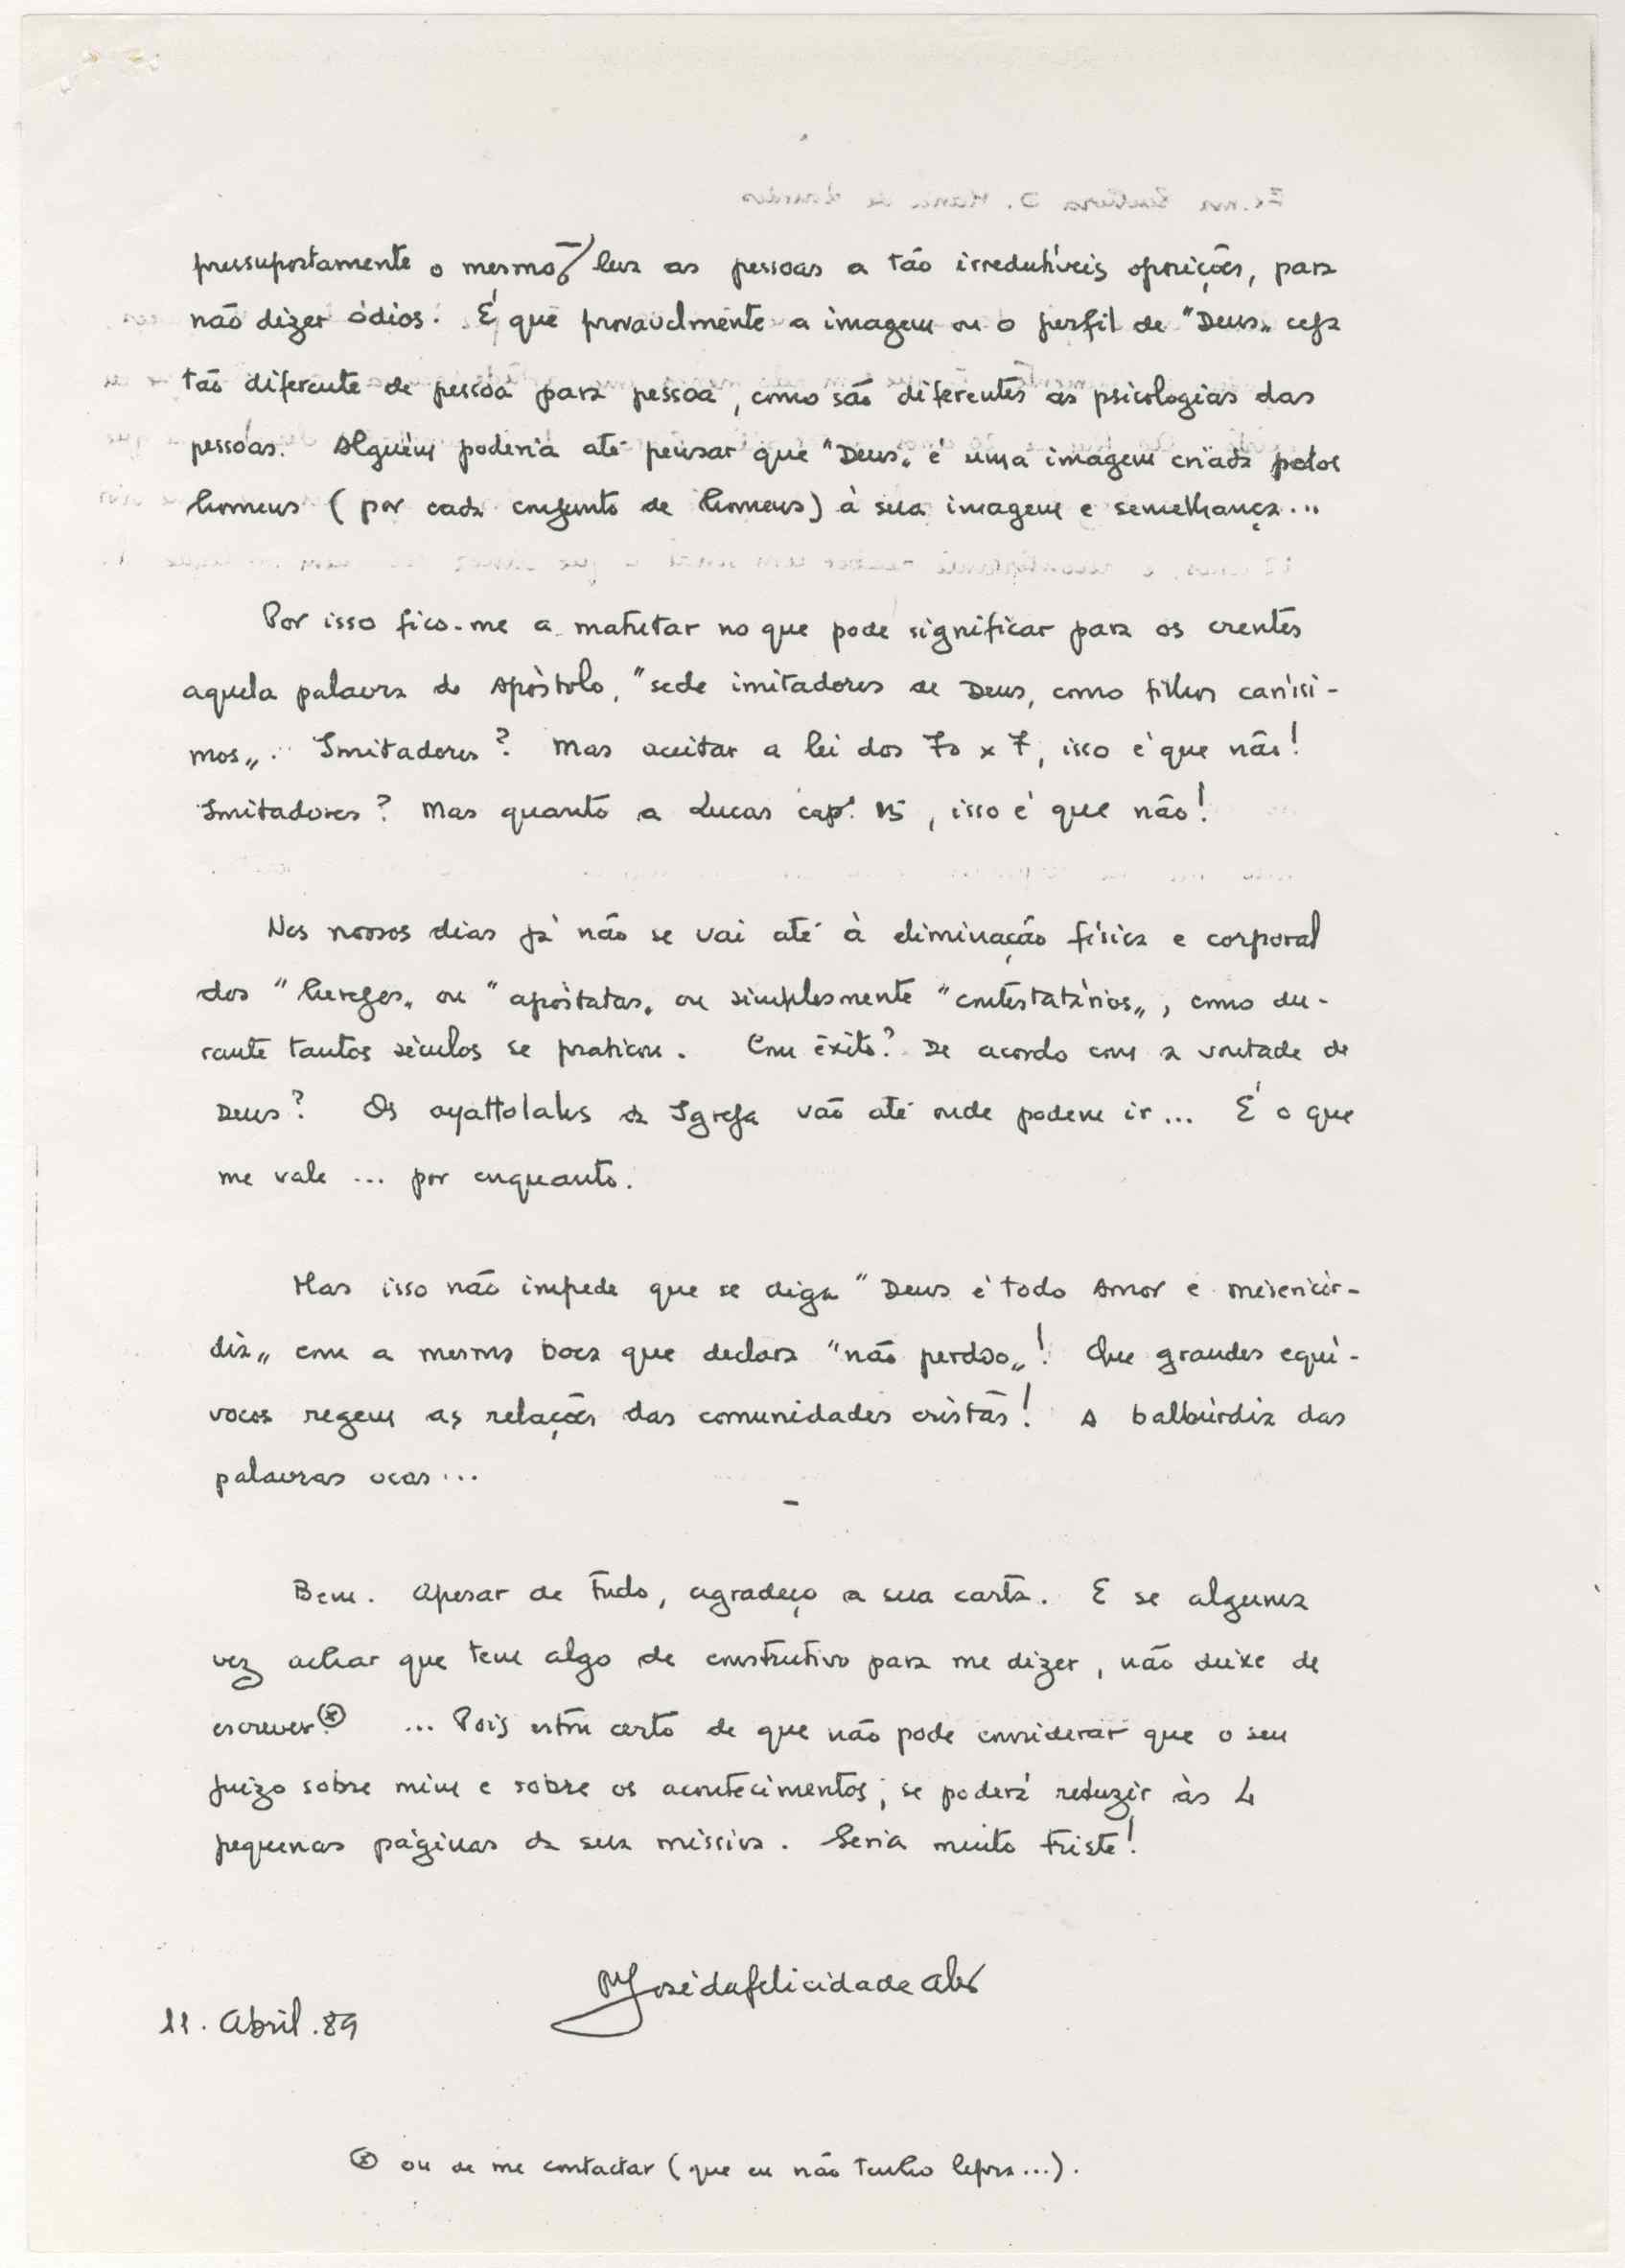 pressupostamente o mesmo) leva as pessoas a tão irredutíveis oposições, para
não dizer ódios. É que provavelmente a imagem ou o perfil de "Deus" seja
tão diferente de pessoa para pessoa, como são diferentes as psicologias das
pessoas. Alguém poderia até pensar que "Deus" é uma imagem criada pelos
homens (por cada conjunto de homens) à sua imagem e semelhança...
Por isso fico-me a matutar no que pode significar para os crentes
aquela palavra do Apóstolo, "sede imitadores de Deus, como filhos caríssi-
mos". Imitadores? Mas aceitar a lei dos 70 x 7, isso é que não!
Imitadores? Mas quanto a Lucas cap. 15, isso é que não!
Nos nossos dias já não se vai até à eliminação física e corporal
dos "hereges" ou "apóstatas" ou simplesmente "contestatários", como du-
rante tantos séculos se praticou. Com êxito? De acordo com a vontade de
Deus? Os ayattolahs da Igreja vão até onde podem ir... É o que
me vale ... por enquanto.
Mas isso não impede que se diga "Deus é todo Amor e misericór-
dia" com a mesma boca que declara "não perdoo"! Que grandes equí-
vocos regem as relações das comunidades cristãs! A balbúrdia das
palavras ocas...
-
Bem. Apesar de tudo, agradeço a sua carta. E se alguma
vez achar que tem algo de construtivo para me dizer, não deixe de
escrever ⊛ ... Pois estou certo de que não pode considerar que o seu
juízo sobre mim e sobre os acontecimentos, se poderá reduzir às 4
pequenas páginas da sua missiva. Seria muito triste!
José da felicidade alves
11. Abril. 89
⊛ ou de me contactar (que eu não tenho lepra...).